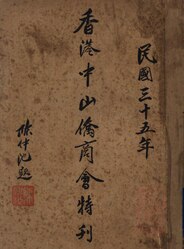 民國三十五年
香港中山僑商會特刊